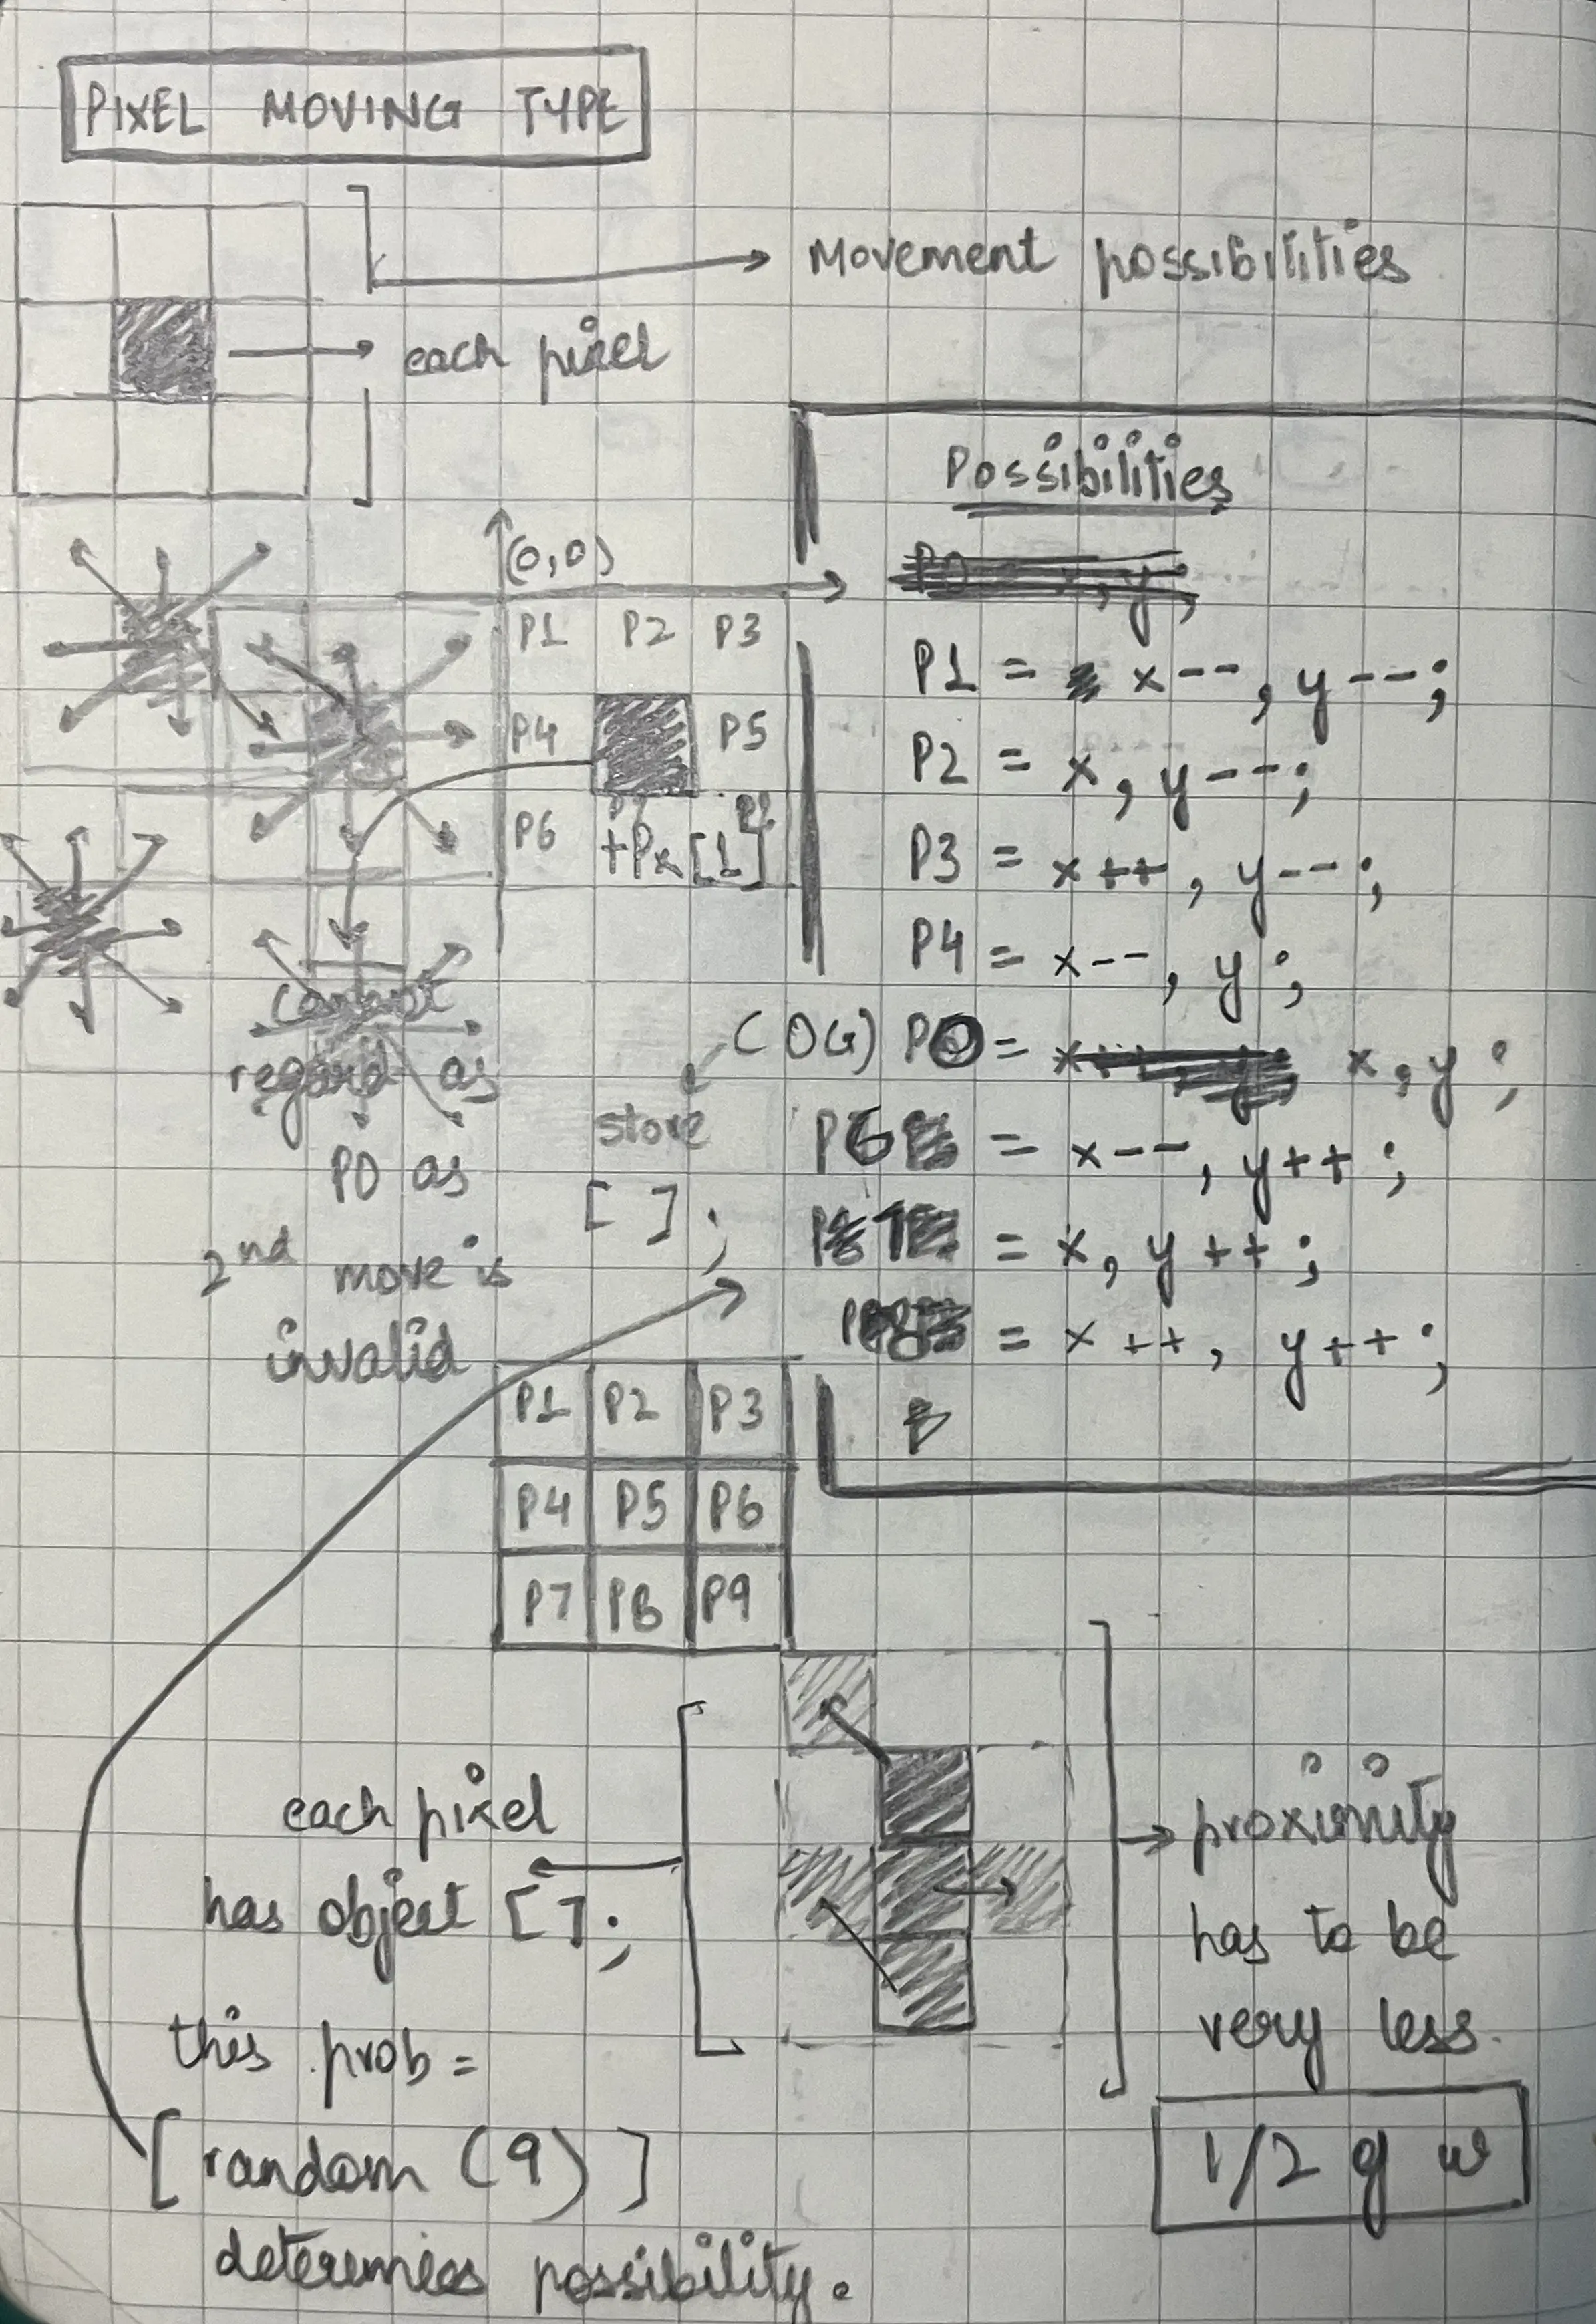 PIXEL MOVING TYPE
Movement possibilities
each pixel
Possibilities
(0,0)
P1 P2 P3
P4 P5
P6
+Px[1]
P1 = x--, y--;
P2 = x, y--;
P3 = x++, y--;
P4 = x--, y;
(OG) P0 = x, y;
P6 = x--, y++;
= x, y++;
= x++, y++;
cannot
regard as
P0 as
2nd move is
invalid
store
[ ];
P1 P2 P3
P4 P5 P6
P7 P8 P9
each pixel
has object [];
this prob =
[random (9)]
determines possibility.
proximity
has to be
very less.
1/2 g w